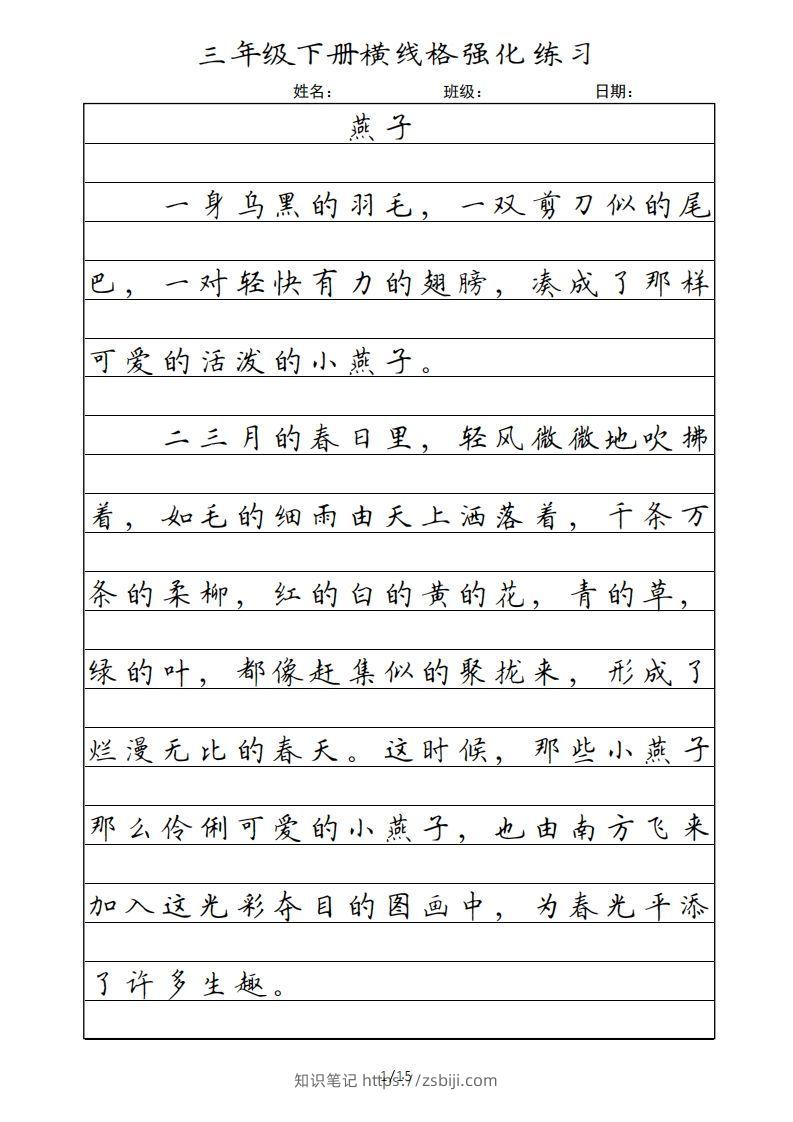 三年级下册横线格强化练习
姓名： 班级： 日期：
燕子
一身乌黑的羽毛，一双剪刀似的尾
巴，一对轻快有力的翅膀，凑成了那样
可爱的活泼的小燕子。
二三月的春日里，轻风微微地吹拂
着，如毛的细雨由天上洒落着，千条万
条的柔柳，红的白的黄的花，青的草，
绿的叶，都像赶集似的聚拢来，形成了
烂漫无比的春天。这时候，那些小燕子
那么伶俐可爱的小燕子，也由南方飞来
加入这光彩夺目的图画中，为春光平添
了许多生趣。
1/15
知识笔记 https://zsbiji.com